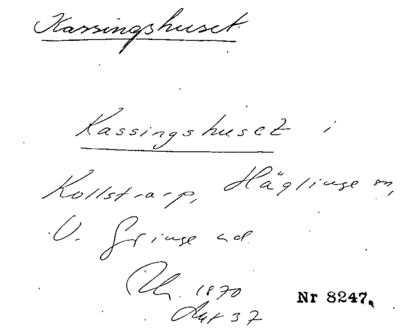 Kassingshuset
Kassingshuset i
Kollstrarp, Häglinge sn,
V. Göinge hd.
1970
Nr 8247.